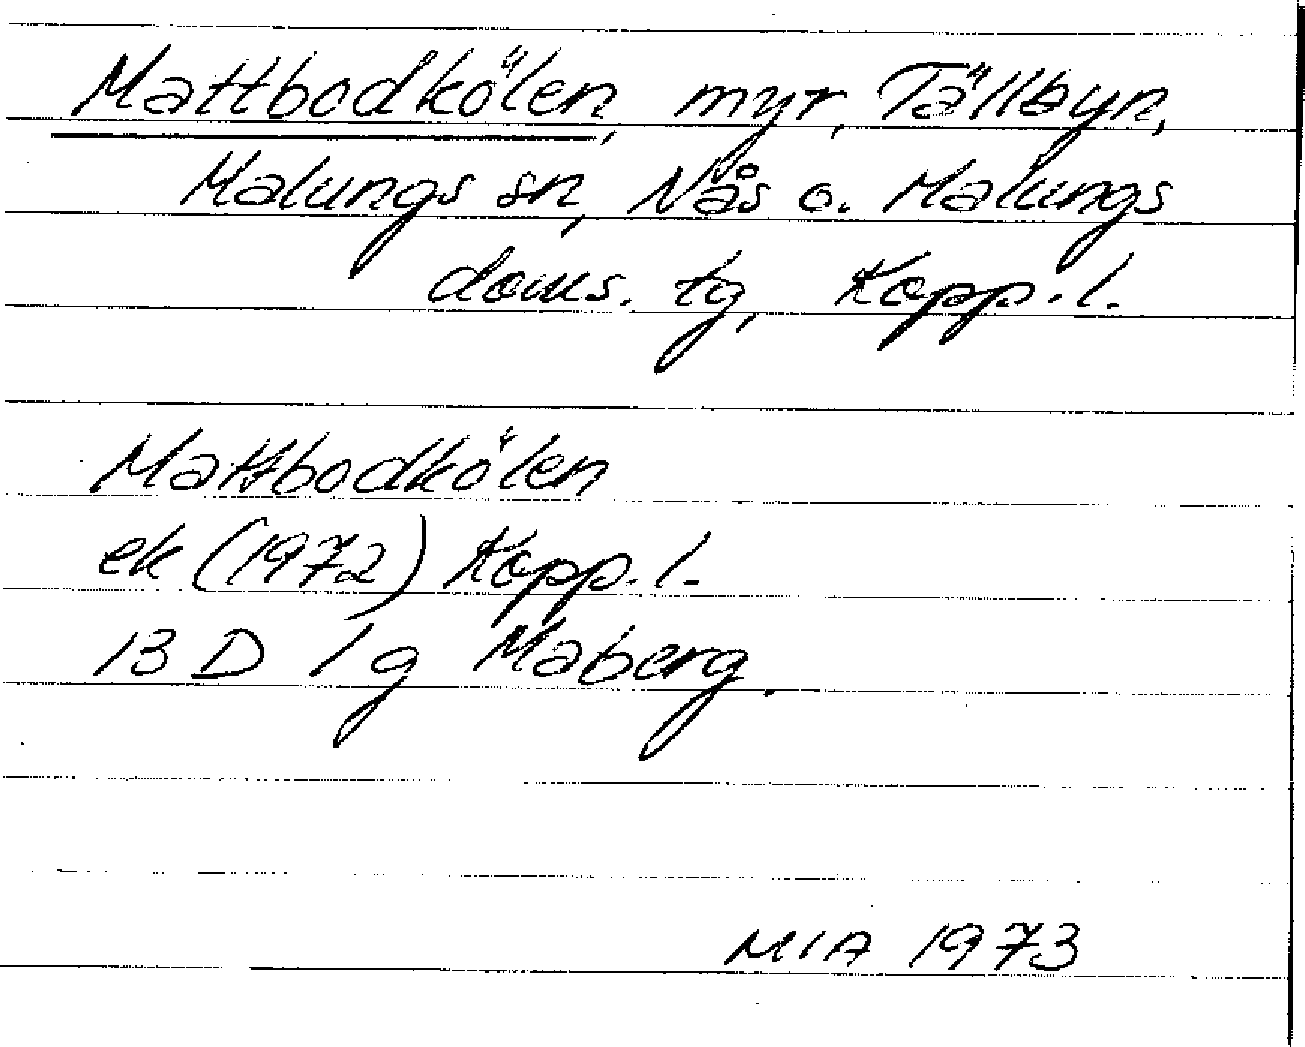 Mattbodkölen, myr, Tällbyn,
Malungs sn, Nås o. Malungs
doms. tg, Kopp. l.
Mattbodkölen
ek (1972) Kopp. l.
13 D 1g Maberg.
MIA 1973